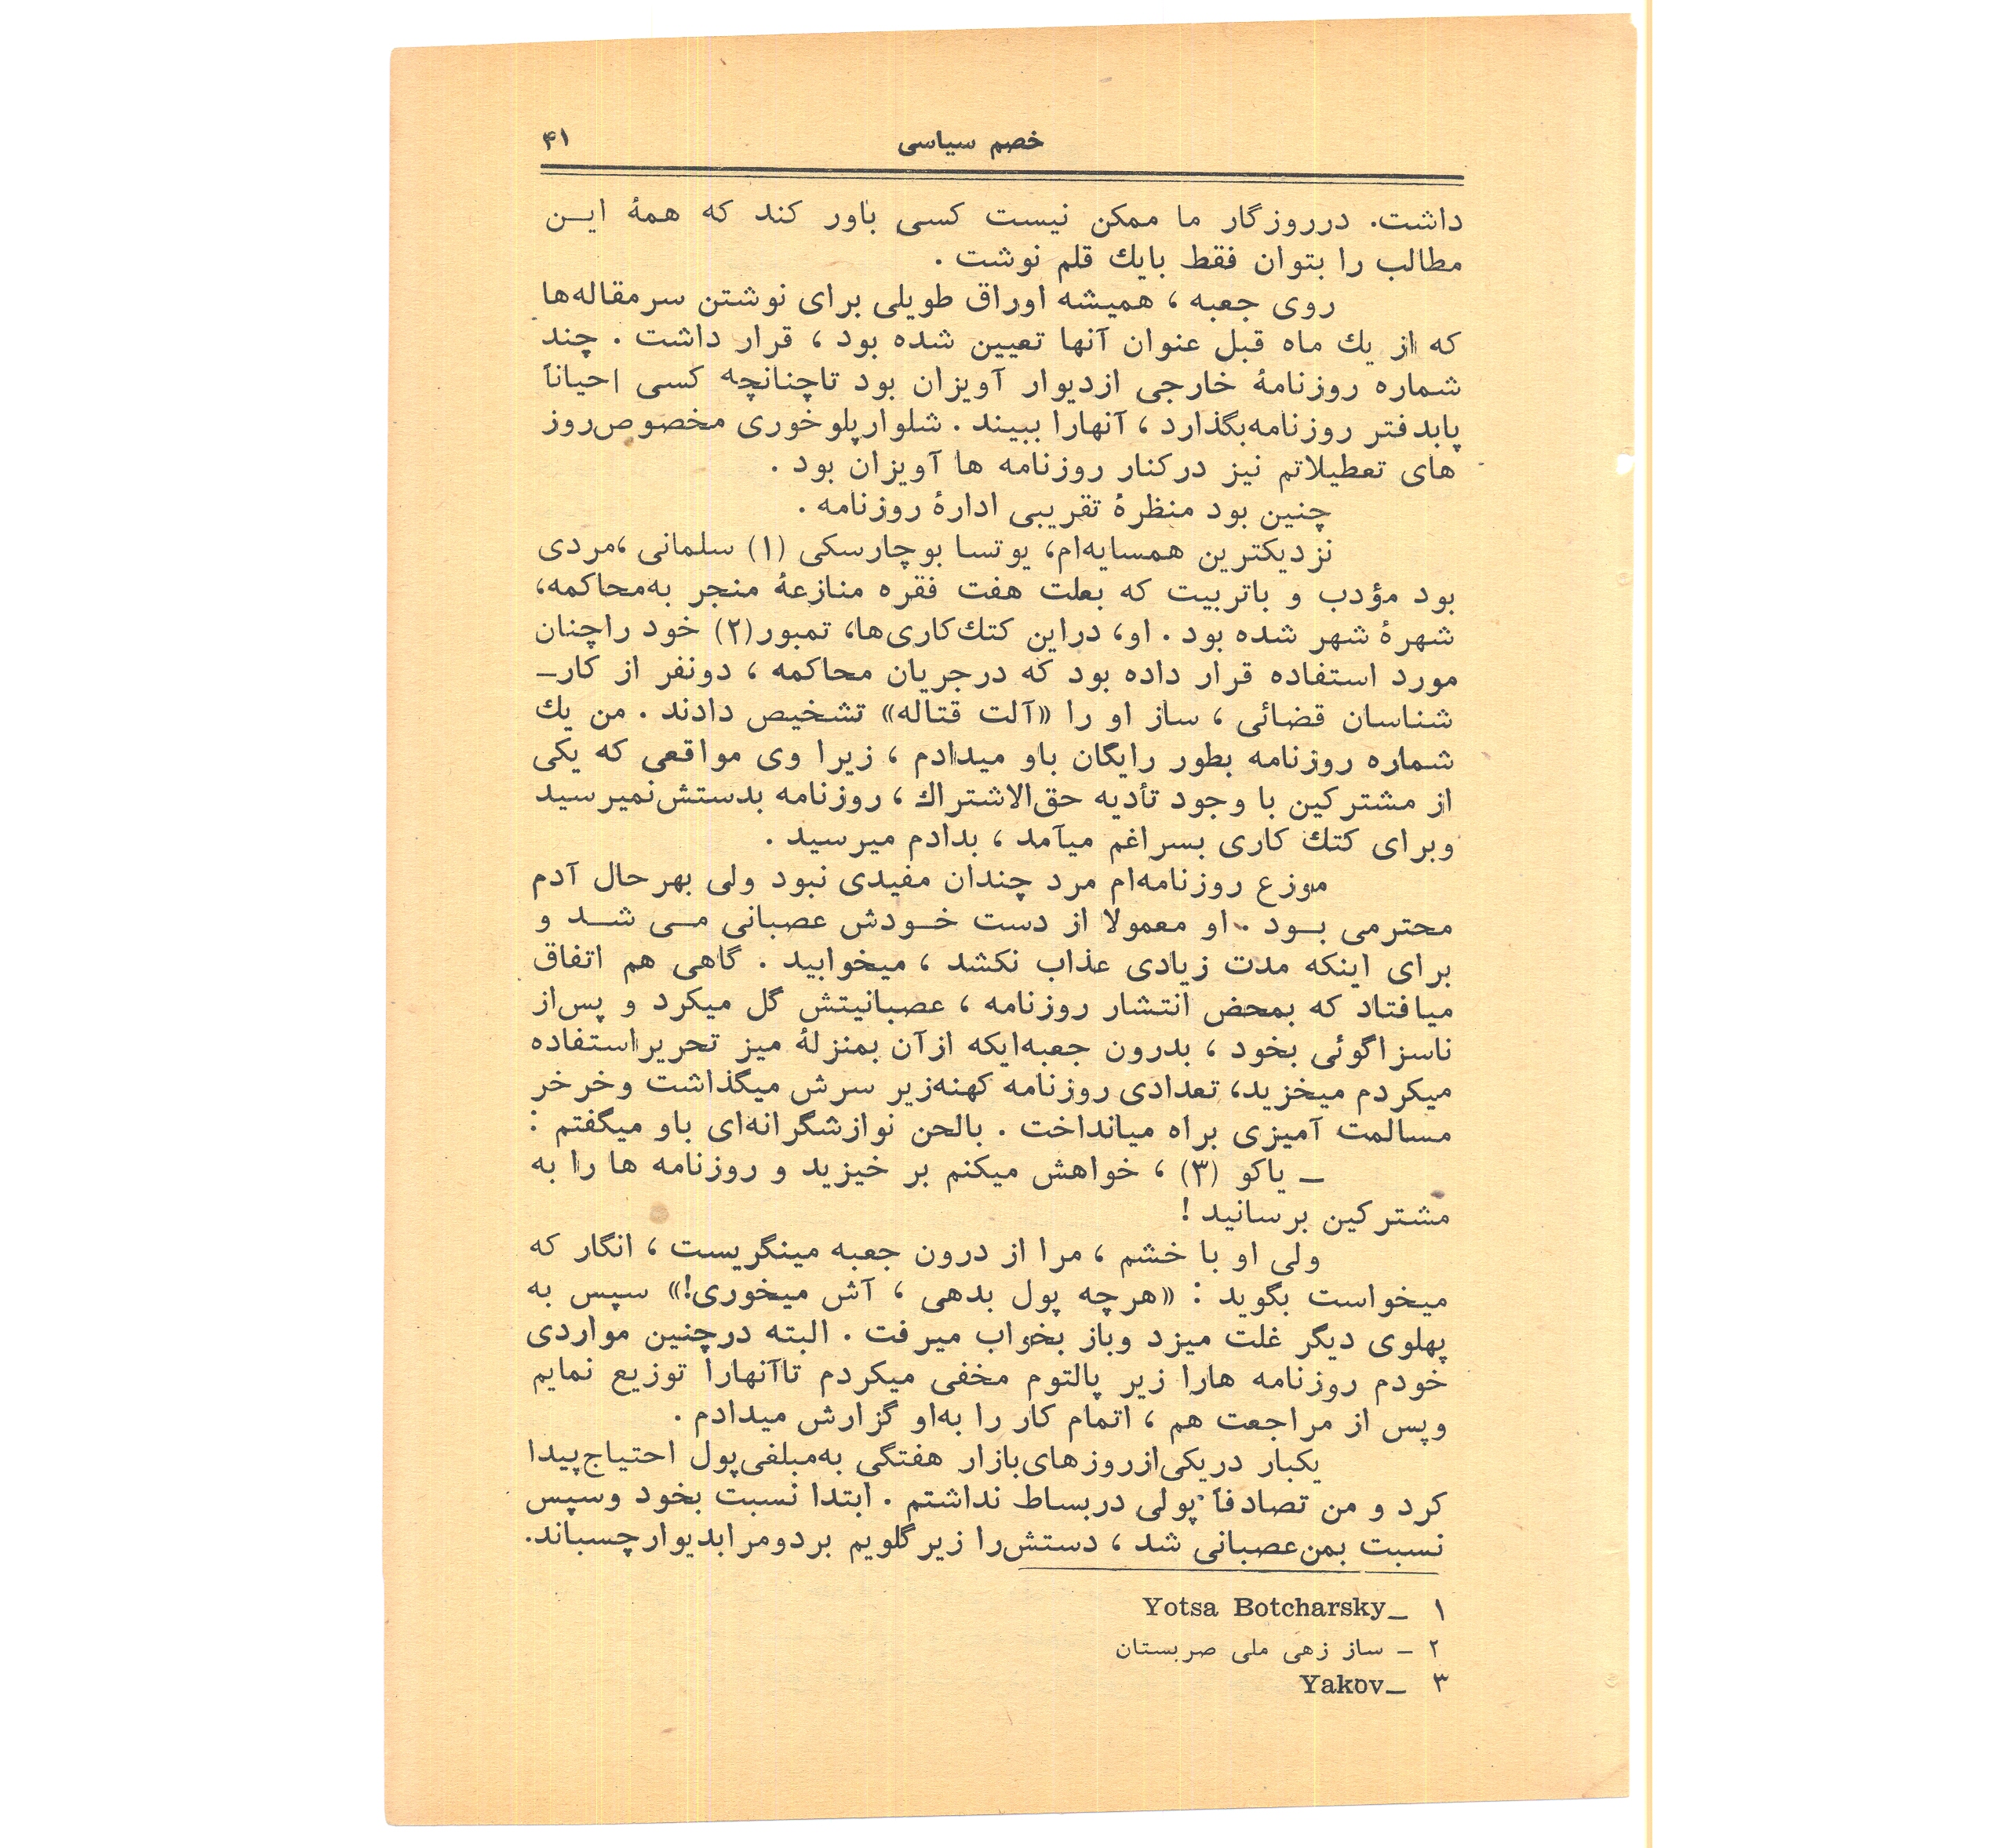 خصم سیاسی ۴۱
داشت. درروزگار ما ممکن نیست کسی باور کند که همهٔ ایـــن
مطالب را بتوان فقط بایك قلم نوشت .
روی جعبه ، همیشه اوراق طویلی برای نوشتن سرمقاله‌ها
که از یك ماه قبل عنوان آنها تعیین شده بود ، قرار داشت . چند
شماره روزنامهٔ خارجی ازدیوار آویزان بود تاچنانچه کسی احیاناً
پابدفتر روزنامه‌بگذارد ، آنهارا ببیند . شلوارپلوخوری مخصوص‌روز
های تعطیلاتم نیز درکنار روزنامه ها آویزان بود .
چنین بود منظرهٔ تقریبی ادارهٔ روزنامه .
نزدیکترین همسایه‌ام، یوتسا بوچارسکی (۱) سلمانی ،مردی
بود مؤدب و باتربیت که بعلت هفت فقره منازعهٔ منجر به‌محاکمه،
شهرهٔ شهر شده بود . او، دراین کتك‌کاری‌ها، تمبور(۲) خود راچنان
مورد استفاده قرار داده بود که درجریان محاکمه ، دونفر از کار‌ــ
شناسان قضائی ، ساز او را «آلت قتاله» تشخیص دادند . من یك
شماره روزنامه بطور رایگان باو میدادم ، زیرا وی مواقعی که یکی
از مشترکین با وجود تأدیه حق‌الاشتراك ، روزنامه بدستش‌نمیرسید
وبرای کتك کاری بسراغم میآمد ، بدادم میرسید .
موزع روزنامه‌ام مرد چندان مفیدی نبود ولی بهرحال آدم
محترمی بـــود . او معمولا از دست خـــودش عصبانی مـــی شـــد و
برای اینکه مدت زیادی عذاب نکشد ، میخوابید . گاهی هم اتفاق
میافتاد که بمحض انتشار روزنامه ، عصبانیتش گل میکرد و پس‌از
ناسزاگوئی بخود ، بدرون جعبه‌ایکه ازآن بمنزلهٔ میز تحریراستفاده
میکردم میخزید، تعدادی روزنامه کهنه‌زیر سرش میگذاشت وخرخر
مسالمت آمیزی براه میانداخت . بالحن نوازشگرانه‌ای باو میگفتم :
ــ یاکو (۳) ، خواهش میکنم بر خیزید و روزنامه ها را به
مشترکین برسانید !
ولی او با خشم ، مرا از درون جعبه مینگریست ، انگار که
میخواست بگوید : «هرچه پول بدهی ، آش میخوری!» سپس به
پهلوی دیگر غلت میزد وباز بخواب میرفت . البته درچنین مواردی
خودم روزنامه هارا زیر پالتوم مخفی میکردم تاآنهارا توزیع نمایم
وپس از مراجعت هم ، اتمام کار را به‌او گزارش میدادم .
یکبار دریکی‌ازروزهای‌بازار هفتگی به‌مبلغی‌پول احتیاج‌پیدا
کرد و من تصادفاً پولی دربساط نداشتم . ابتدا نسبت بخود وسپس
نسبت بمن‌عصبانی شد ، دستش‌را زیرگلویم بردومرابدیوارچسباند.
۱ ــ Yotsa Botcharsky
۲ ــ ساز زهی ملی صربستان
۳ ــ Yakov